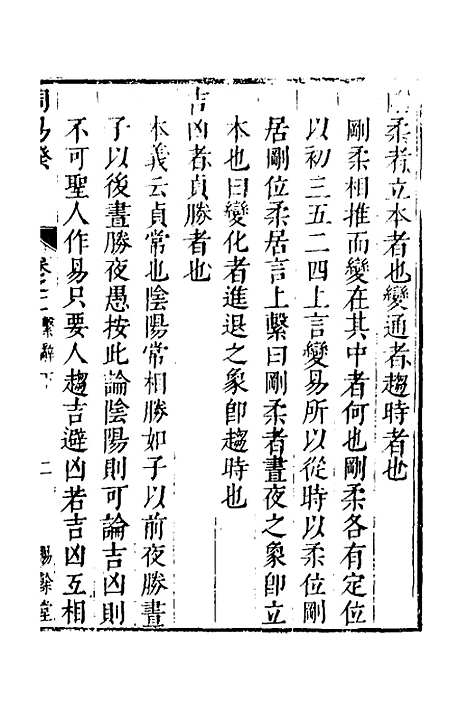 柔者立本者也變通者趨時者也
剛柔相推而變在其中者何也剛柔各有定位
以初三五二四上言變易所以從時以柔位剛
居剛位柔居言上繫曰剛柔者晝夜之象卽立
本也曰變化者進退之象卽趨時也
吉凶者貞勝者也
本義云貞常也陰陽常相勝如子以前夜勝晝
子以後晝勝夜愚按此論陰陽則可論吉凶則
不可聖人作易只要人趨吉避凶若吉凶互相
周易 卷之二 繫辭下 二 賜餘堂